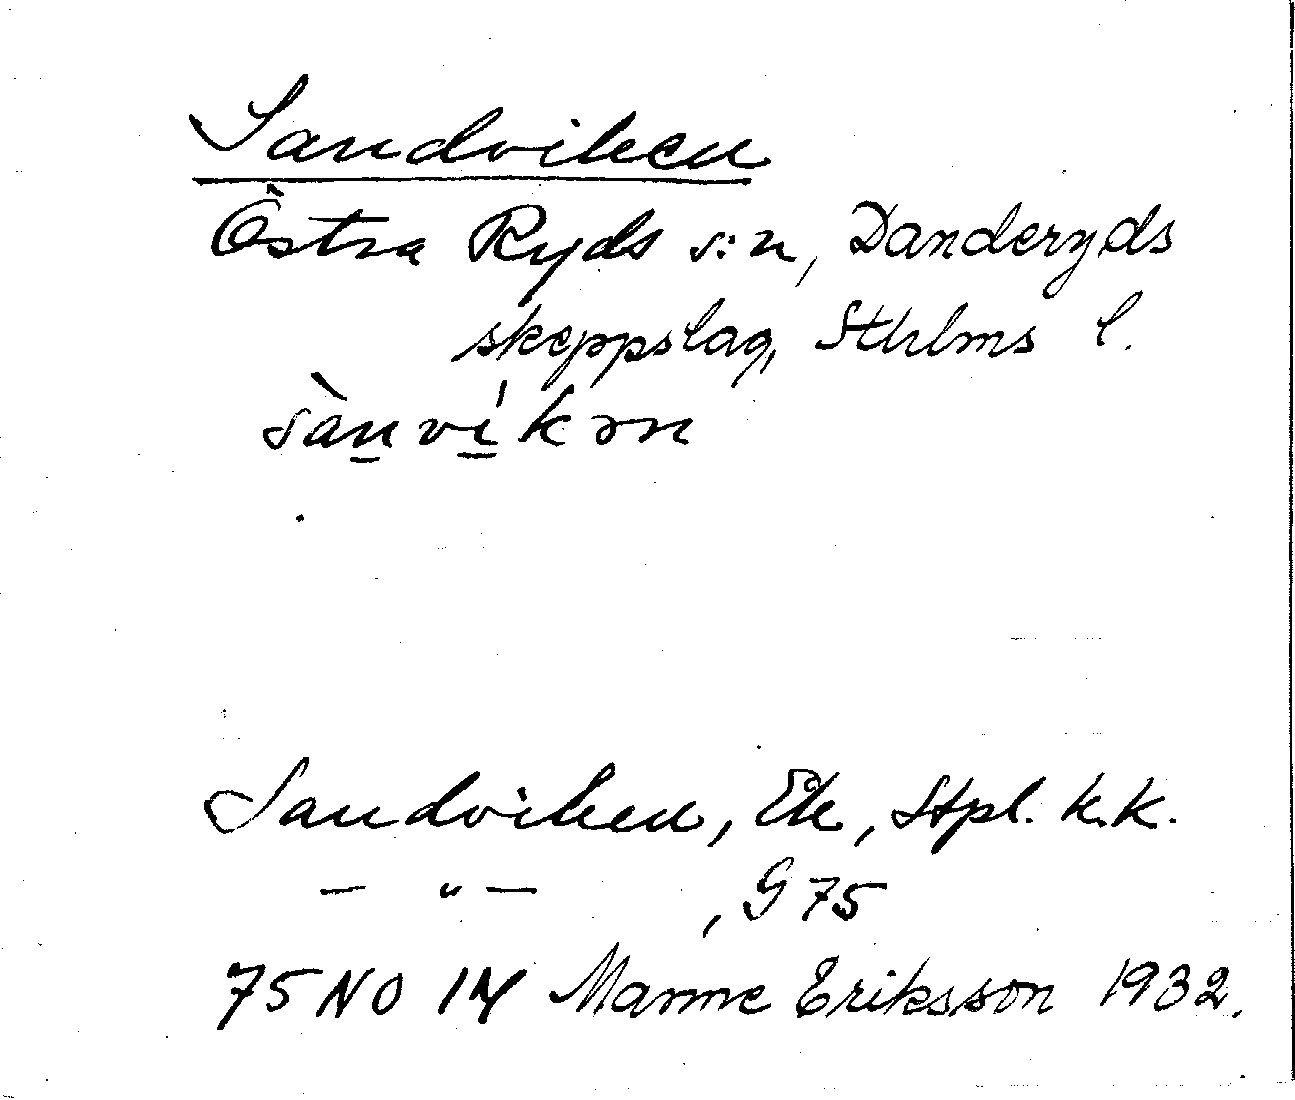 Sandviken
Östra Ryds s:n, Danderyds
skeppslag, Sthlms l.
sànvíkən
Sandviken, Ek, Stpl. k.k.
— " — , G 75
75 NO 14 Manne Eriksson 1932.